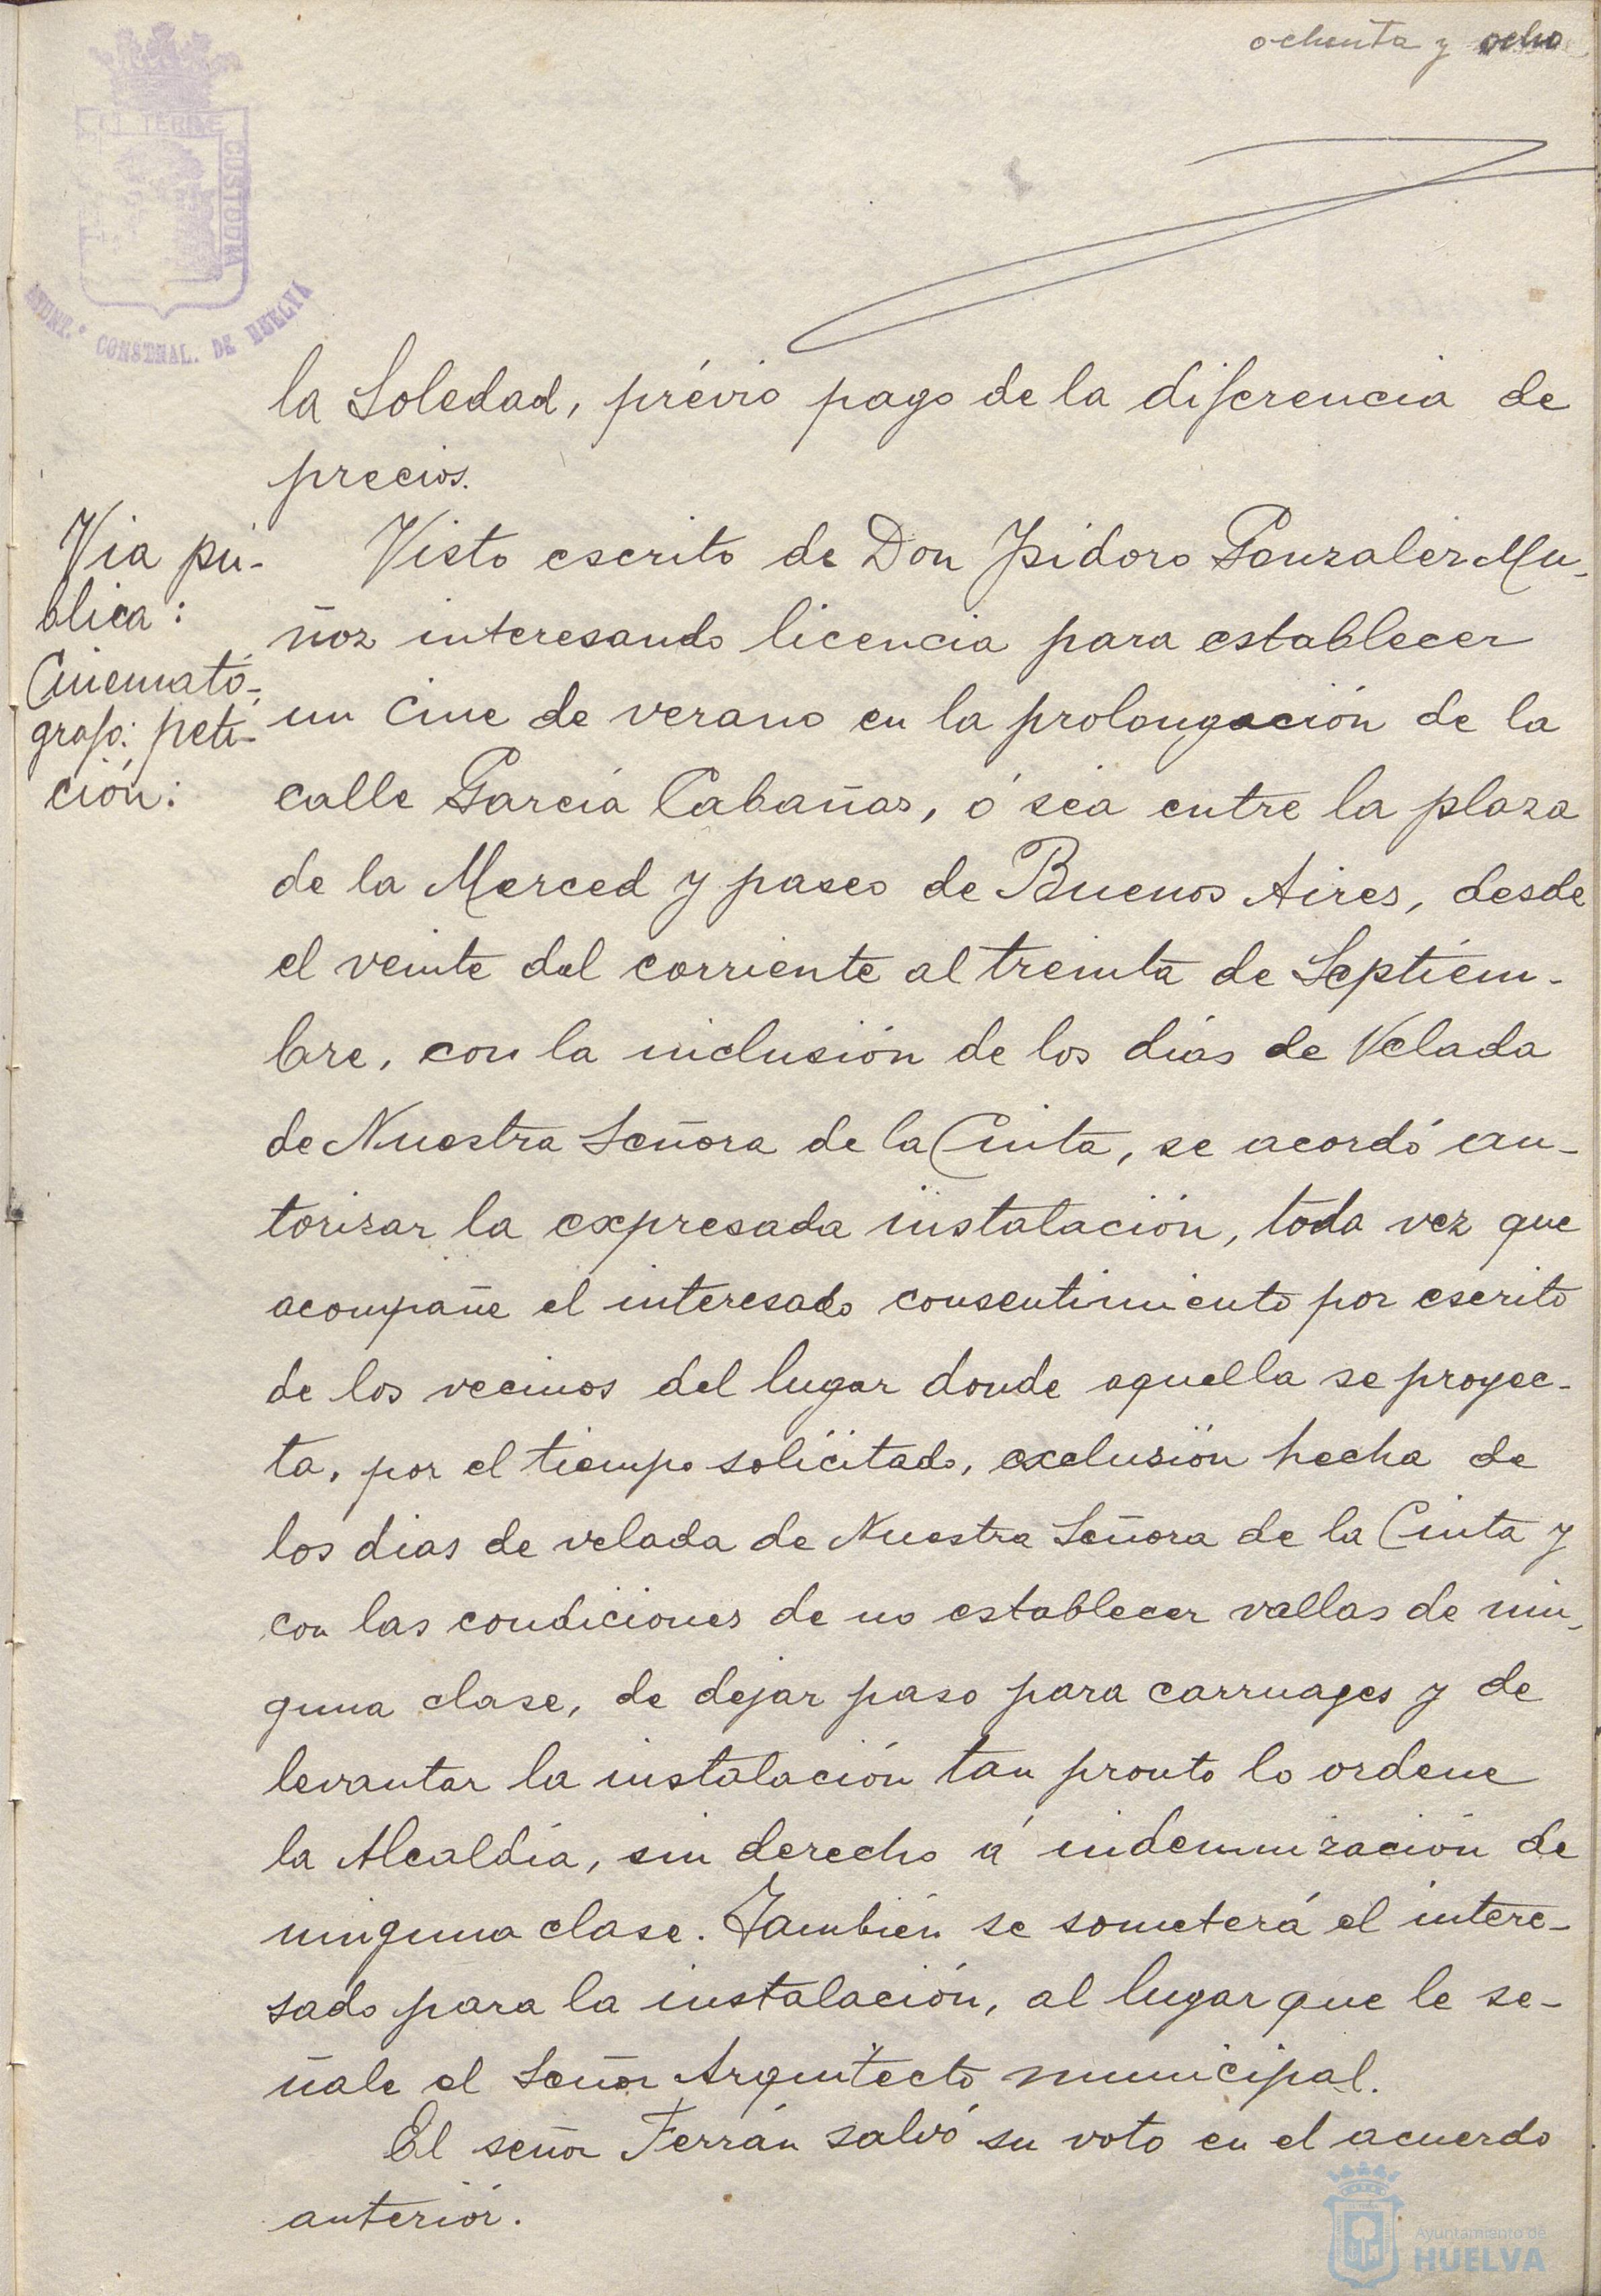 ochenta y ocho
TERRE
CUSTODIA
AYUNT.º CONSTNAL. DE HUELVA
la Soledad, prévio pago de la diferencia de
precios.
Via pú-
blica:
Cinemató-
grafo: peti-
ción:
Visto escrito de Don Ysidoro Gonzalez Mu-
ñoz interesando licencia para establecer
un cine de verano en la prolongación de la
calle García Cabañas, ó séa entre la plaza
de la Merced y paseo de Buenos Aires, desde
el veinte del corriente al treinta de Septiem-
bre, con la inclusión de los días de Velada
de Nuestra Señora de la Cinta, se acordó au-
torizar la expresada instalación, toda vez que
acompañe el interesado consentimiento por escrito
de los vecinos del lugar donde aquella se proyec-
ta, por el tiempo solicitado, exclusión hecha de
los dias de velada de Nuestra Señora de la Cinta y
con las condiciones de no establecer vallas de nin-
guna clase, de dejar paso para carruages y de
levantar la instalación tan pronto lo ordene
la Alcaldía, sin derecho á indemnización de
ninguna clase. También se someterá el intere-
sado para la instalación, al lugar que le se-
ñale el Señor Arquitecto municipal.
El señor Ferrán salvó su voto en el acuerdo
anterior.
Ayuntamiento de
HUELVA